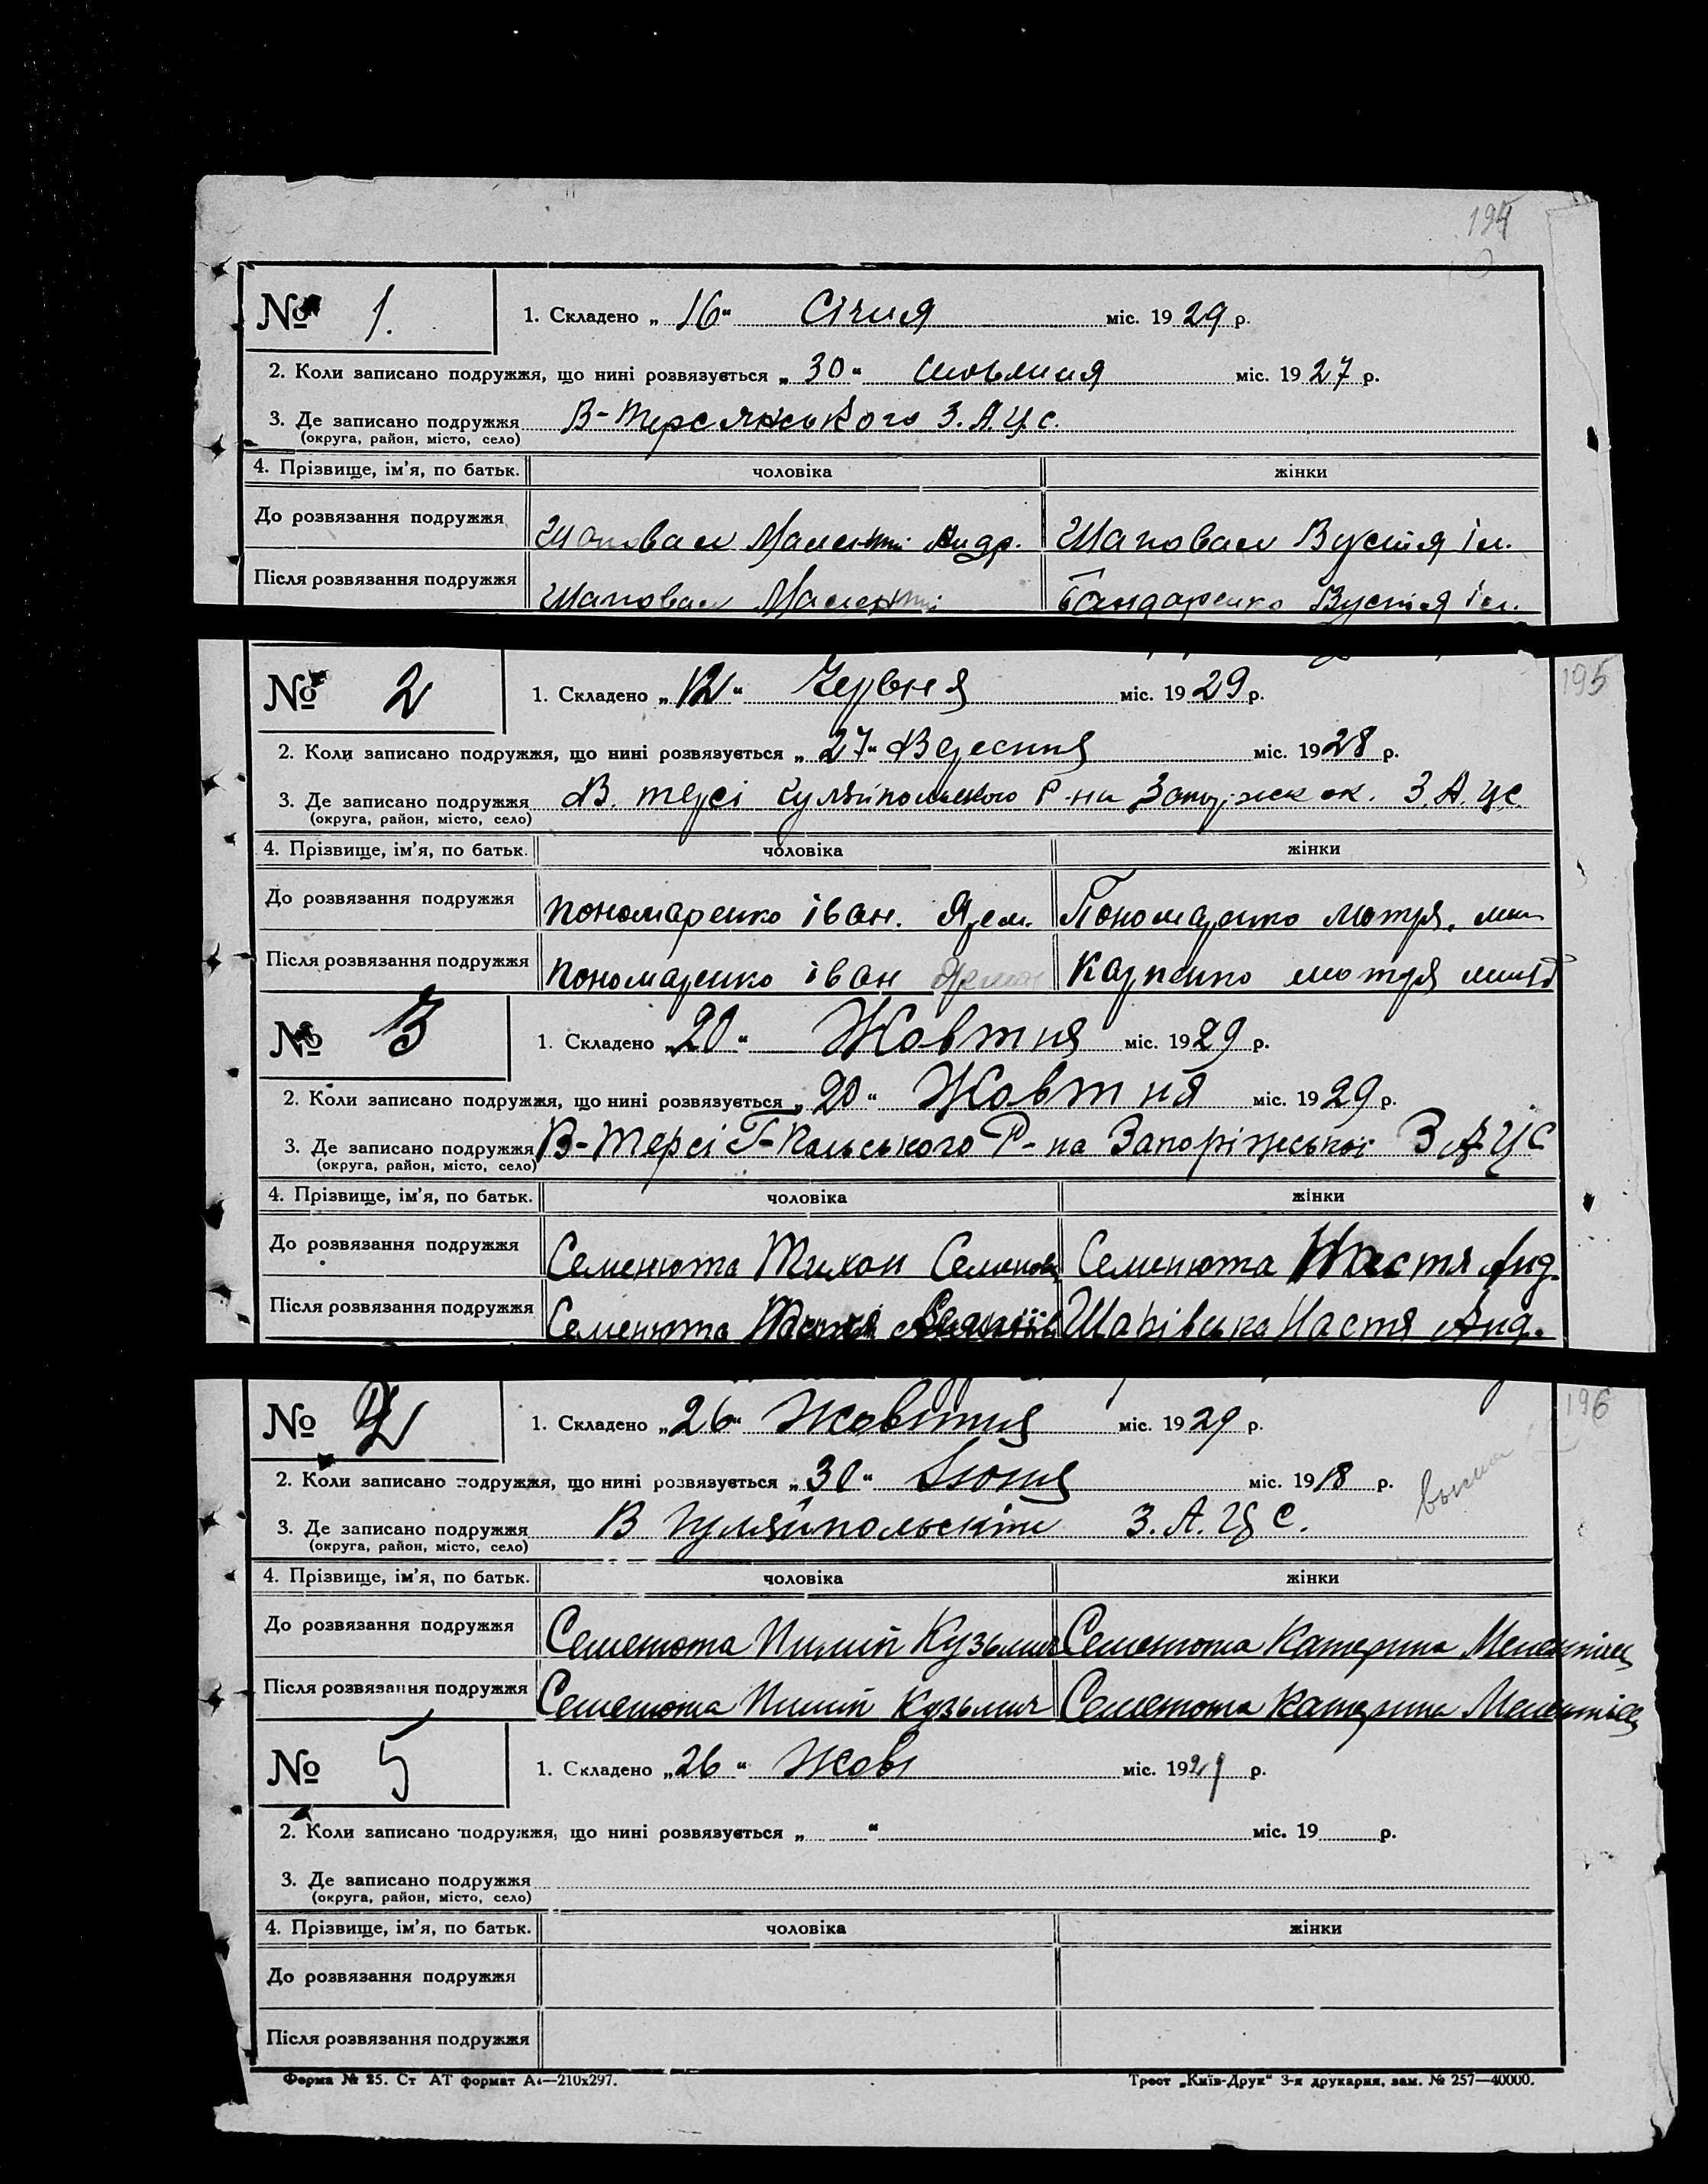 194
№ 1. 1. Складено „16“ Січня міс. 1929 р.
2. Коли записано подружжя, що нині розвязується „30“ міс. 1927 р.
3. Де записано подружжя В-Терсянського З.А.Ц.С.
(округа, район, місто, село)
4. Прізвище, ім'я, по батьк. чоловіка жінки
До розвязання подружжя Шаповал Андр. Шаповал Вустя Іл.
Після розвязання подружжя Шаповал Бандаренко Вустя Іл.
195
№ 2 1. Складено „12“ Червня міс. 1929 р.
2. Коли записано подружжя, що нині розвязується „27“ Вересння міс. 1928 р.
3. Де записано подружжя В. Терсі Гуляйпольского Р-на ок. З.А.ЦС
(округа, район, місто, село)
4. Прізвище, ім'я, по батьк. чоловіка жінки
До розвязання подружжя Пономаренко Іван. Ярем. Пономаренко мотря.
Після розвязання подружжя Пономаренко Іван Карпенко мотря
№ 3 1. Складено „20“ Жовтня міс. 1929 р.
2. Коли записано подружжя, що нині розвязується „20“ Жовтня міс. 1929 р.
3. Де записано подружжя В-Терсі Г-Пальського Р-на Запоріжської ЗАЦС
(округа, район, місто, село)
4. Прізвище, ім'я, по батьк. чоловіка жінки
До розвязання подружжя Семенюта Тихон Семенов Семенюта Настя Анд.
Після розвязання подружжя Семенюта Шарівська Настя Анд.
196
№ 4 1. Складено „26“ Жовтня міс. 1929 р.
2. Коли записано подружжя, що нині розвязується „30“ міс. 1918 р.
3. Де записано подружжя В Гуляйпольскім З.А.ЦС.
(округа, район, місто, село)
4. Прізвище, ім'я, по батьк. чоловіка жінки
До розвязання подружжя Семенюта Пилип Кузьмич Семенюта Катерина
Після розвязання подружжя Семенюта Пилип Кузьмич Семенюта Катерина
№ 5 1. Складено „26“ Жовт міс. 1929 р.
2. Коли записано подружжя, що нині розвязується „ “ міс. 19 р.
3. Де записано подружжя
(округа, район, місто, село)
4. Прізвище, ім'я, по батьк. чоловіка жінки
До розвязання подружжя
Після розвязання подружжя
Форма № 25. Ст АТ формат А4—210х297. Трест „Київ-Друк“ 3-я друкарня, зам. № 257—40000.